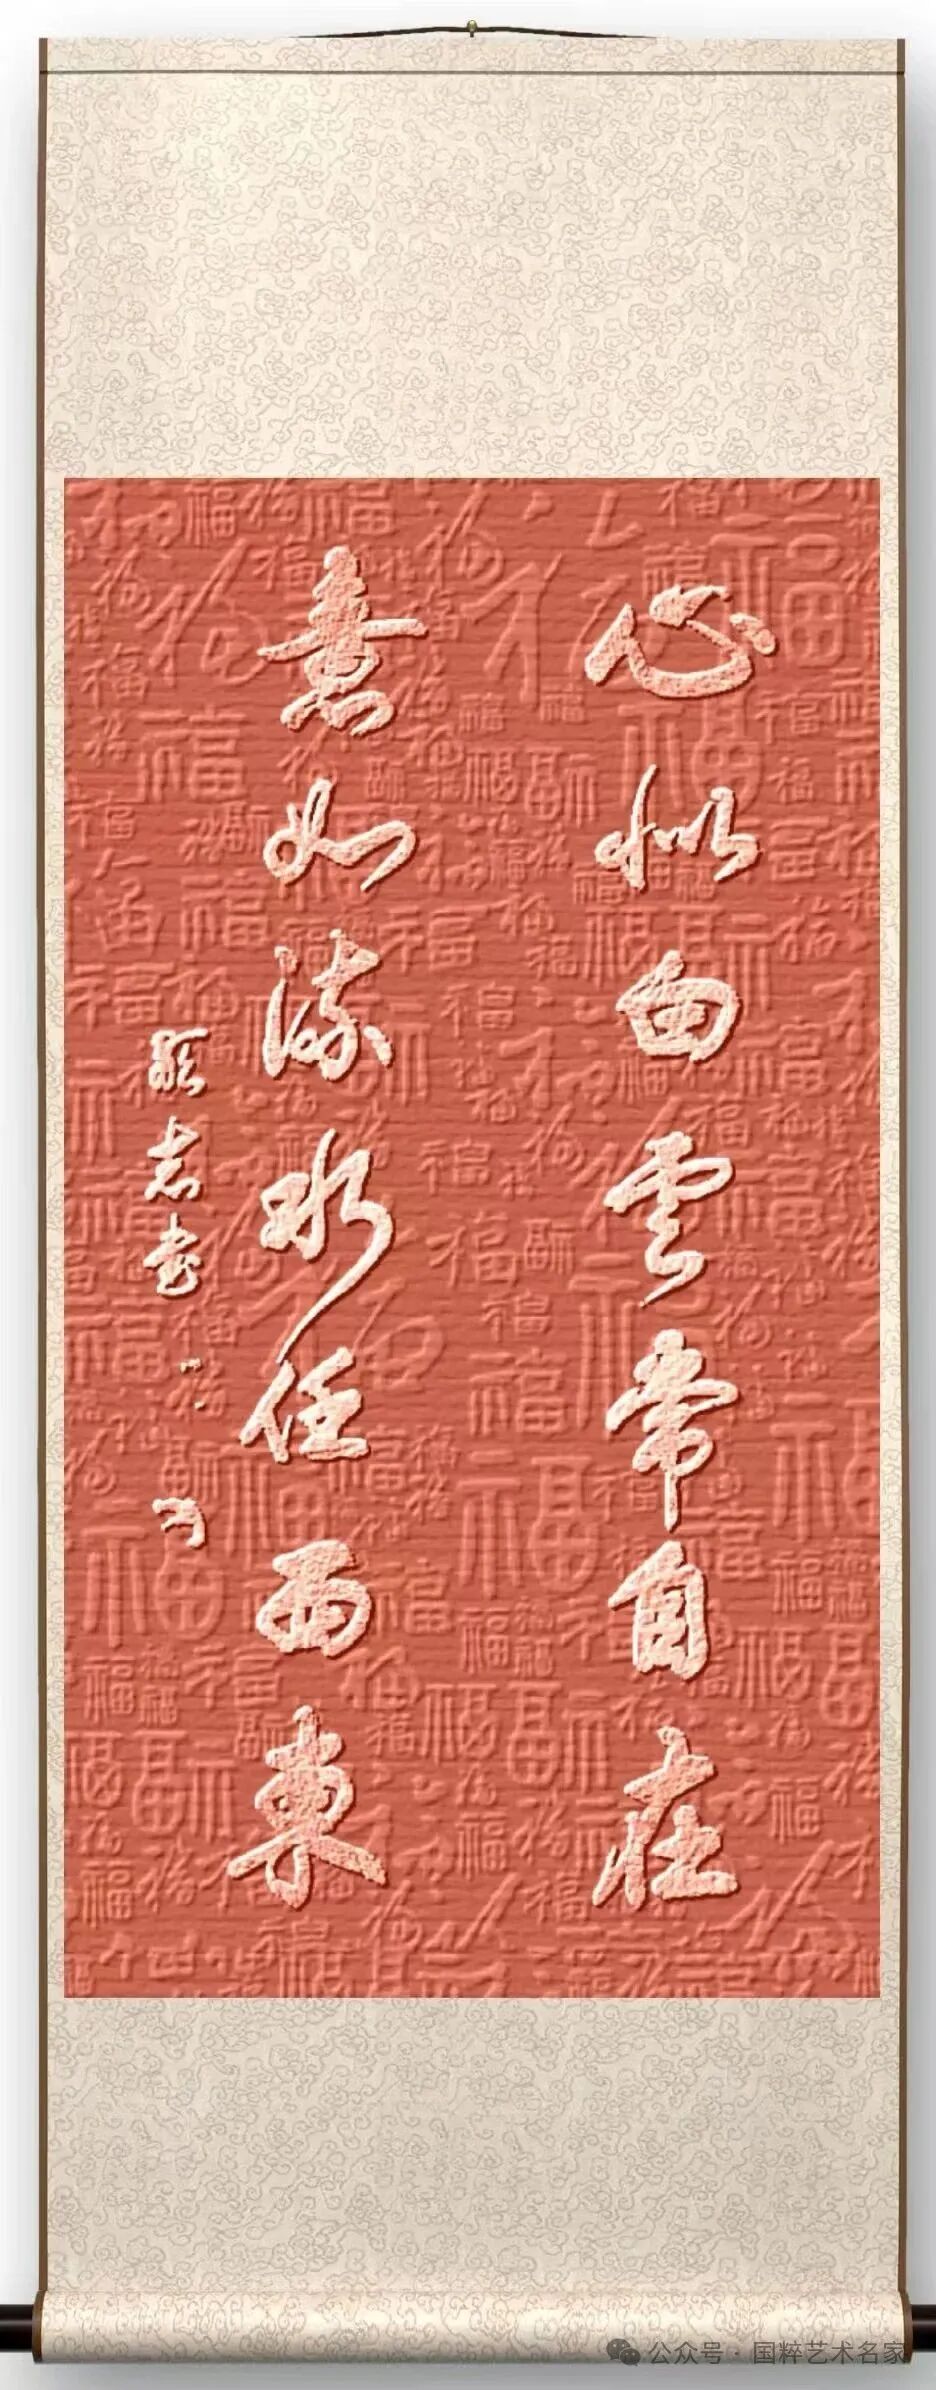 心似白雲常自在
意如流水任西東
志书
公众号·国粹艺术名家